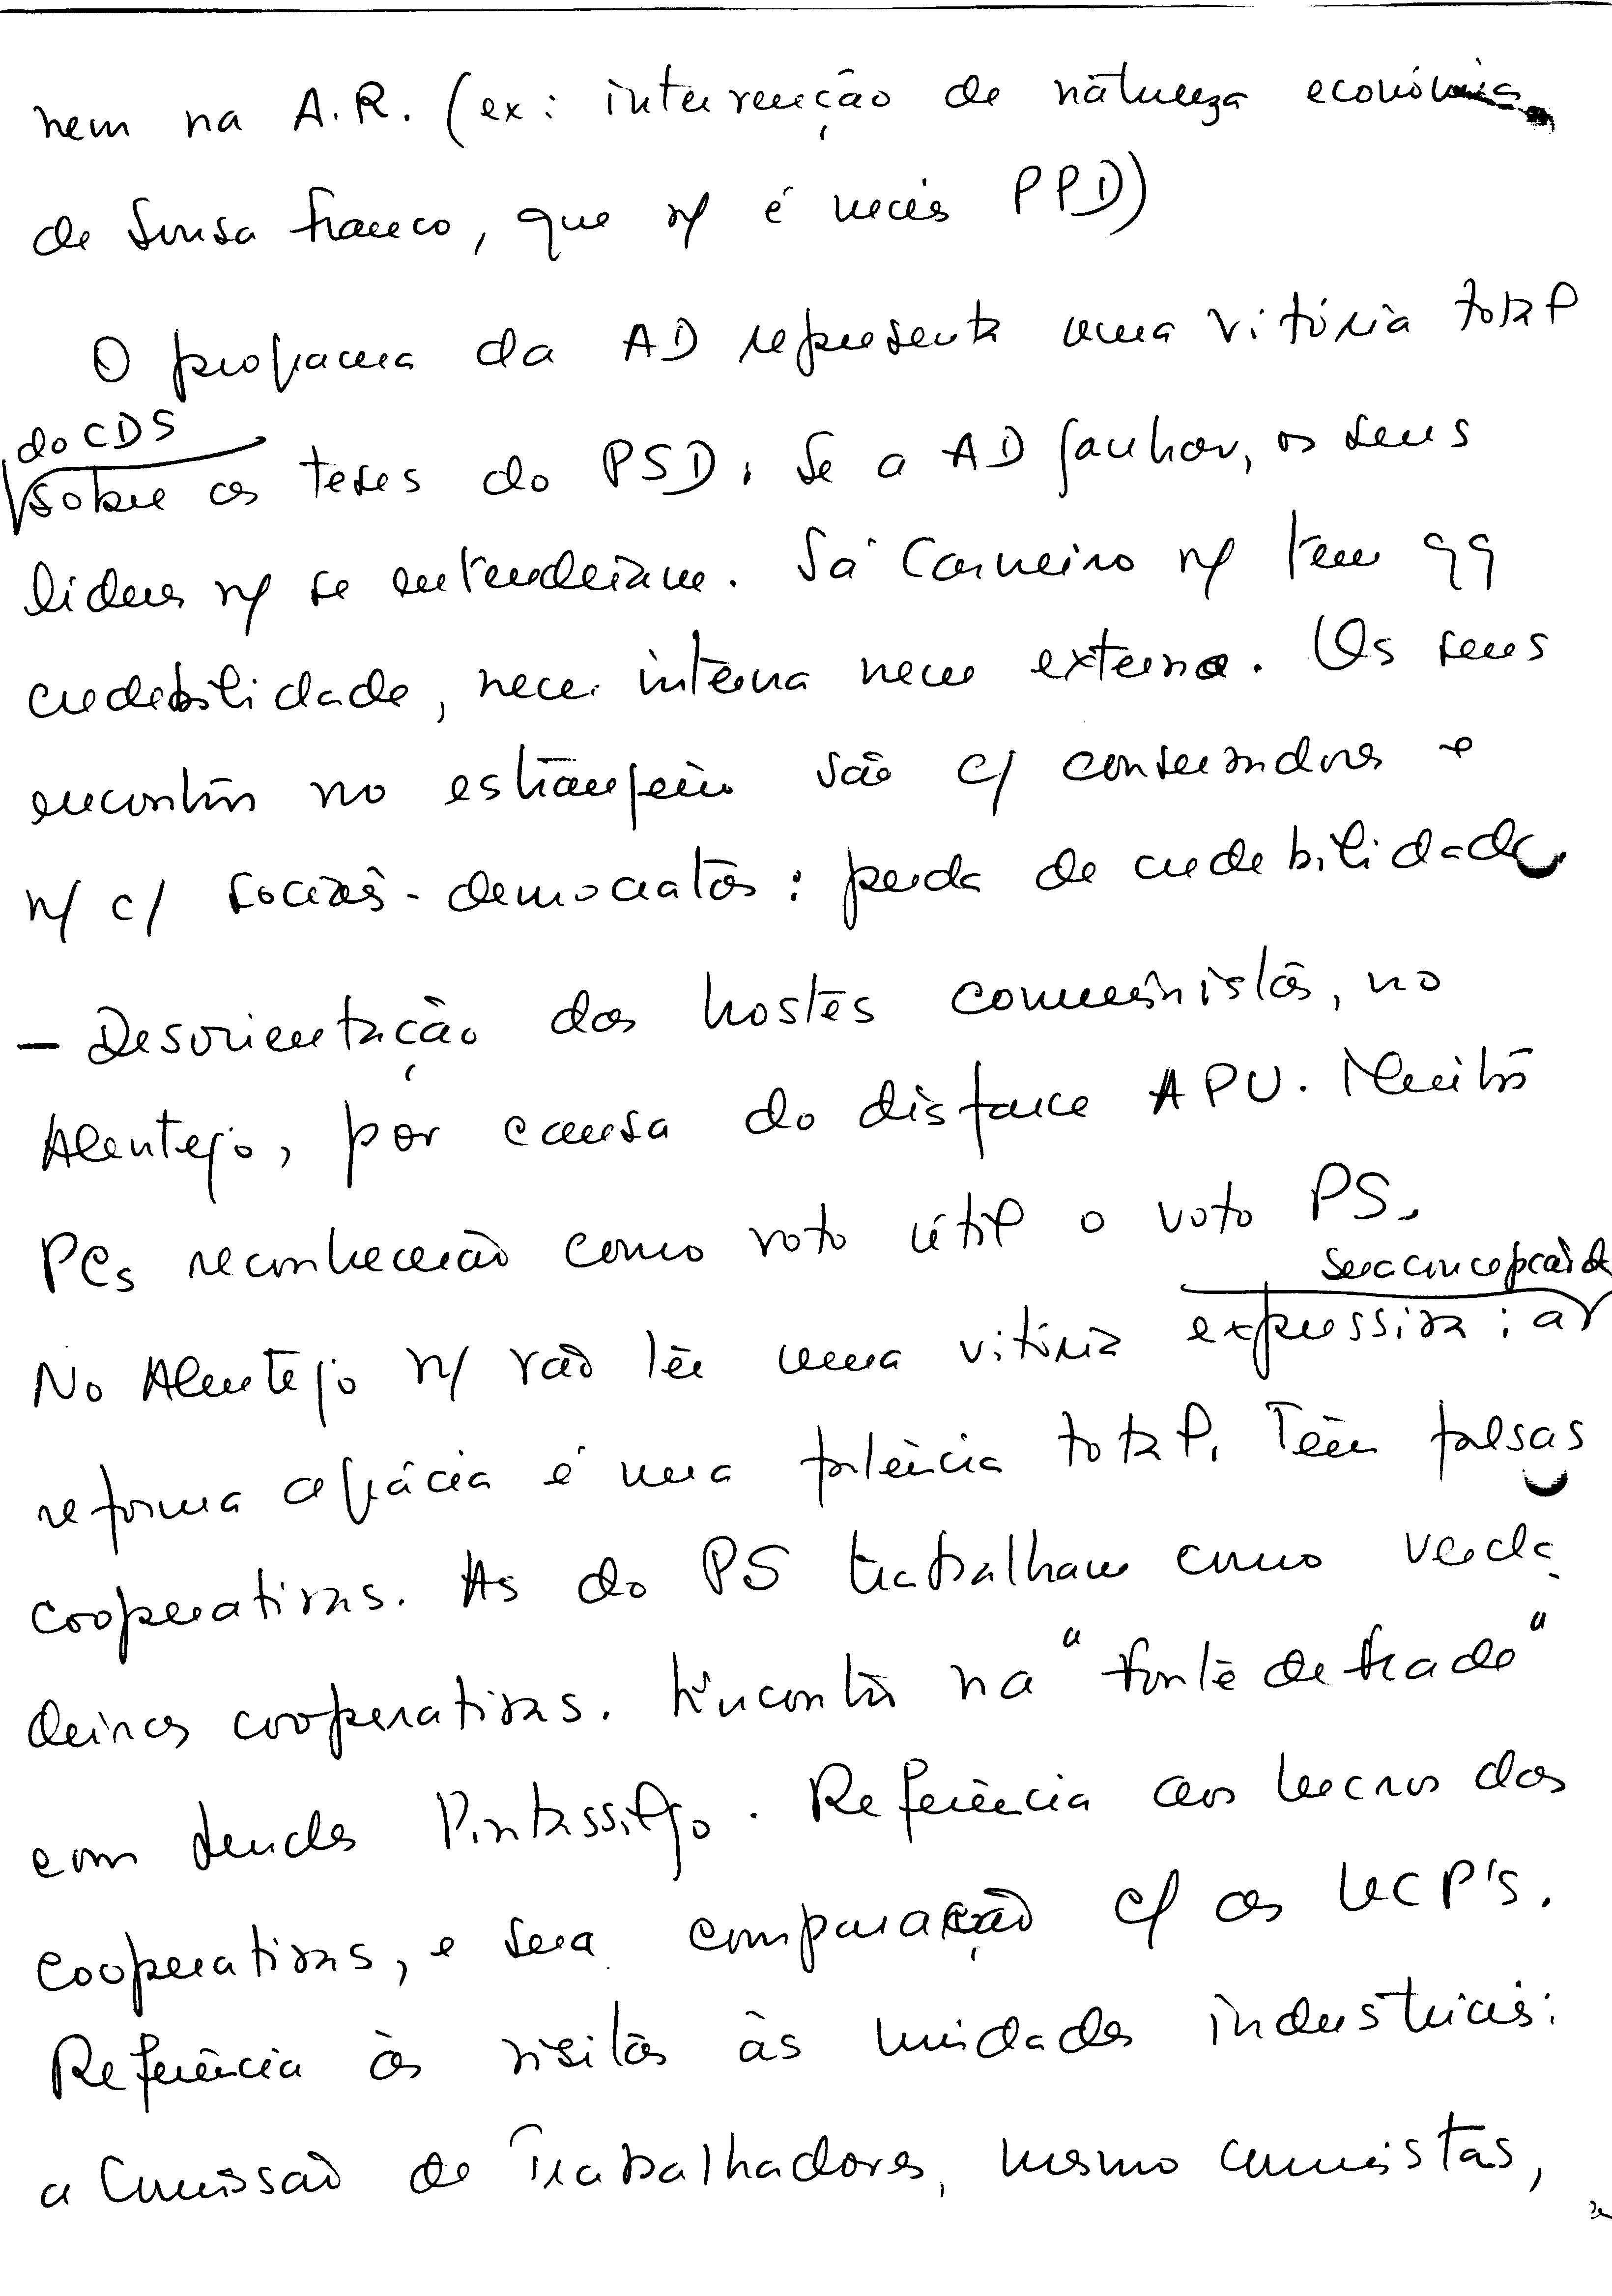 nem na A.R. (ex: intervenção de natureza económica
de Sousa Franco, que ñ é mais PPD)
O programa da AD representa uma vitória total
do CDS
sobre as teses do PSD. Se a AD ganhar, os seus
líderes ñ se entenderiam. Sá Carneiro ñ tem qq
credebilidade, nem interna nem externa. Os seus
encontros no estrangeiro são c/ conservadores e
ñ c/ sociais-democratas: perda de credebilidade
– Desorientação das hostes comunistas, no
Alentejo, por causa do disfarce APU. Muitos
PCs reconhecerão como voto útil o voto PS.
sua concepção de
No Alentejo ñ vão ter uma vitória expressiva: a
reforma agrária é uma falência total. Têm falsas
cooperativas. As do PS trabalham como verda
deiras cooperativas. Encontro na "Fonte de Frade"
com Lurdes Pintassilgo. Referência aos lucros das
cooperativas, e sua comparação c/ as UCP's.
Referência às visitas às unidades industriais:
a Comissão de Trabalhadores, mesmo comunistas,